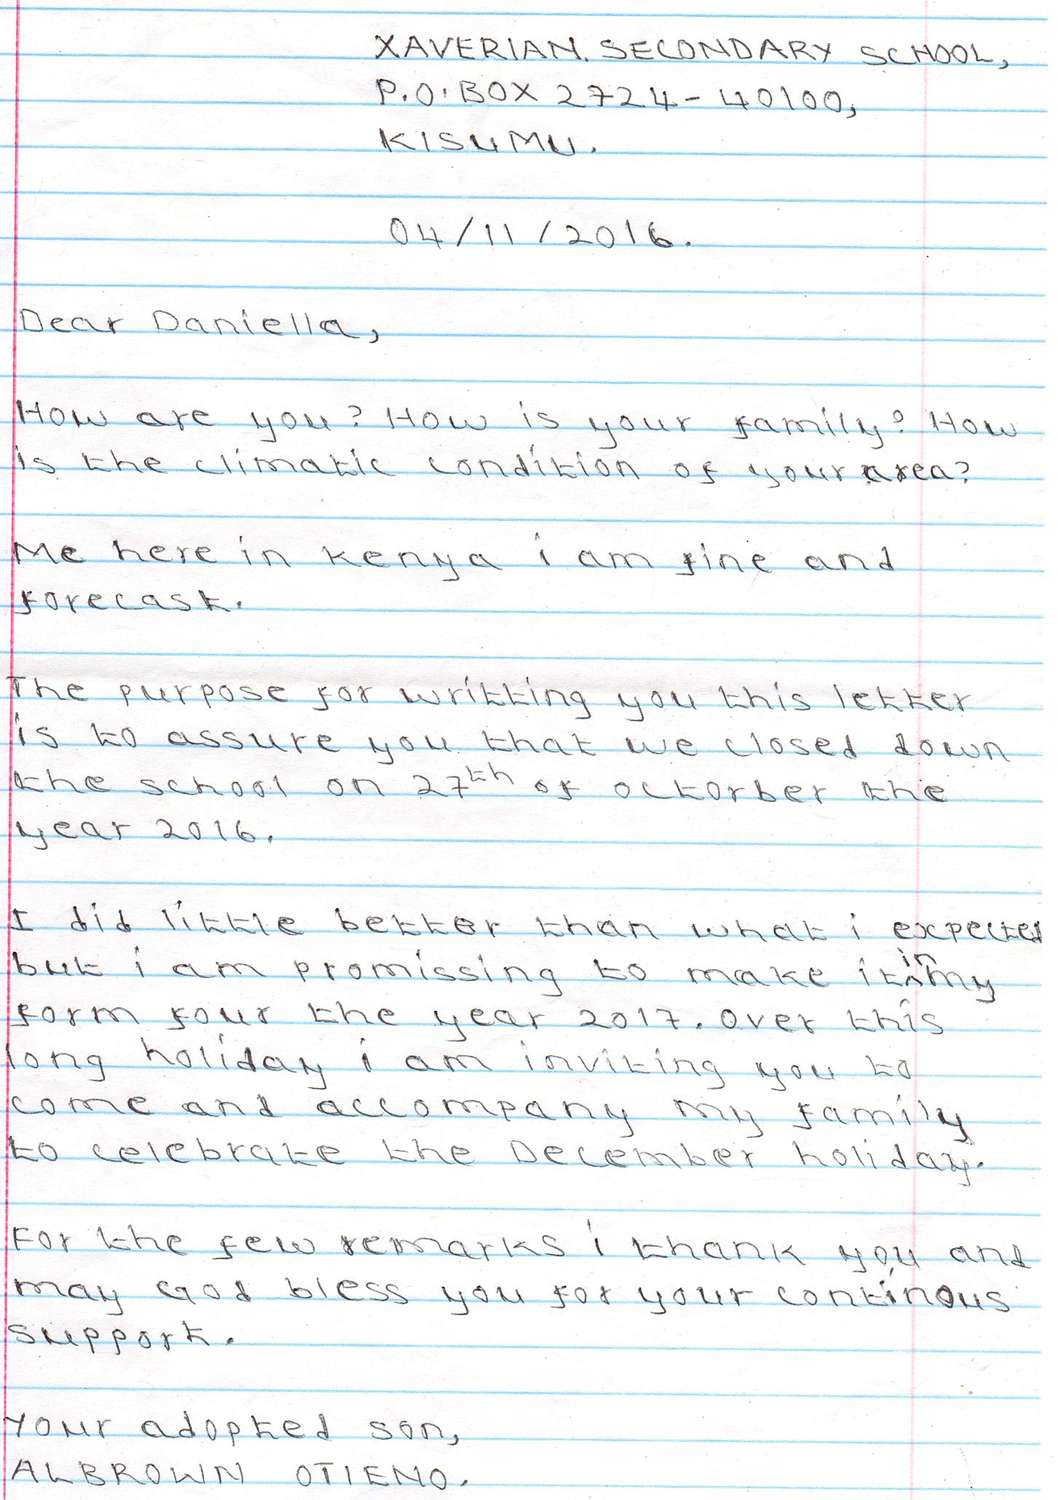 XAVERIAN. SECONDARY SCHOOL,
P.O. BOX 2724-40100,
KISUMU.
04/11/2016.
Dear Daniella,
How are you? How is your family? How
is the climatic condition of your area?
Me here in Kenya i am fine and
forecast.
The purpose for writting you this letter
is to assure you that we closed down
the school on 27th of octorber the
year 2016.
I did little better than what i expected
but i am promissing to make it in my
form four the year 2017. Over this
long holiday i am inviting you to
come and accompany my family
to celebrate the December holiday.
For the few remarks i thank you and
may God bless you for your continous
support.
Your adopted son,
ALBROWN OTIENO.